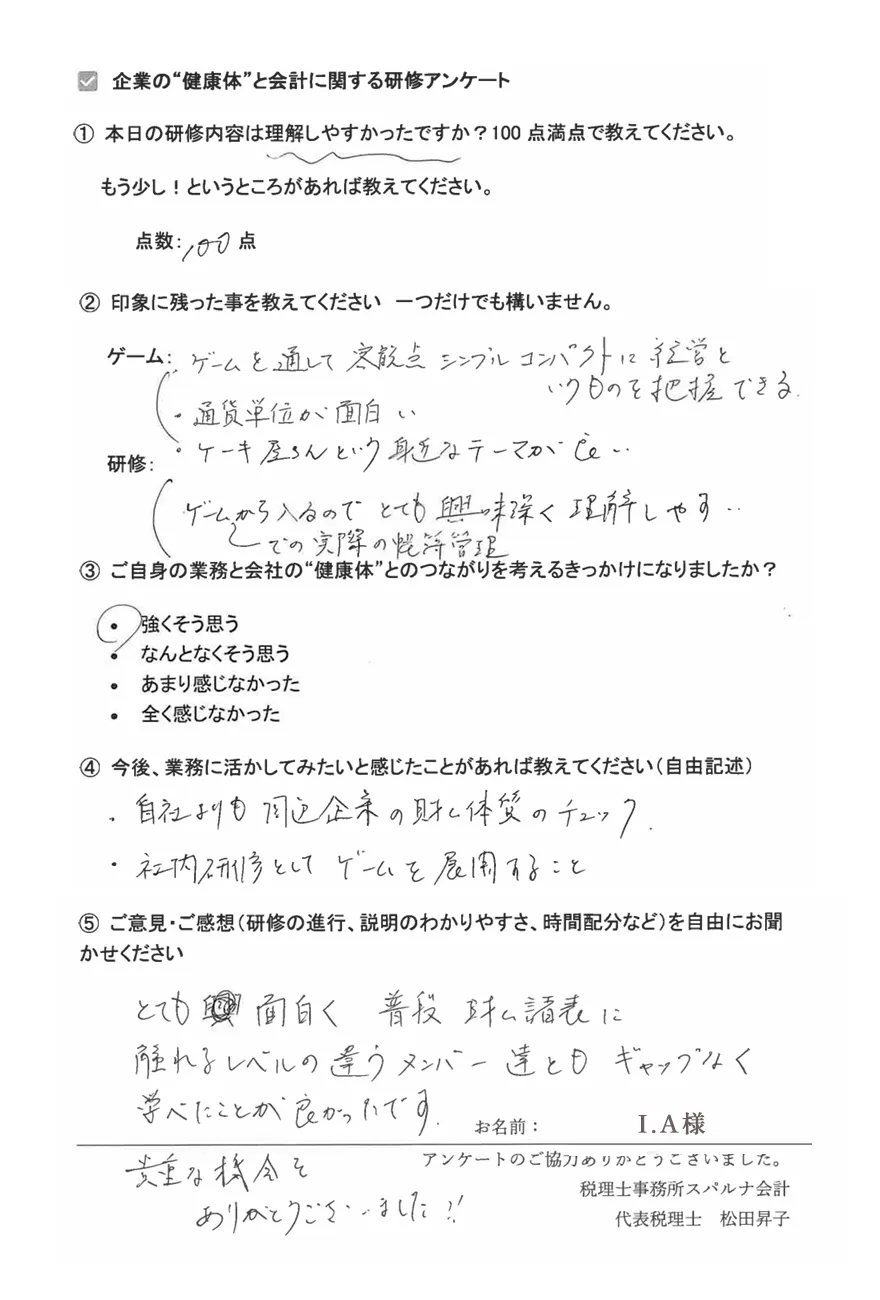 企業の“健康体”と会計に関する研修アンケート
① 本日の研修内容は理解しやすかったですか？100 点満点で教えてください。
もう少し！というところがあれば教えてください。
点数： 100 点
② 印象に残った事を教えてください 一つだけでも構いません。
ゲーム： ゲームを通して 客観点 シンプル コンパクトに 経営と
いうものを把握できる.
・通貨単位が面白い
・ケーキ屋さんという身近なテーマが良い
研修：
ゲームから入るので とても 興味深く 理解しやすい
での実際の帳簿管理
③ ご自身の業務と会社の“健康体”とのつながりを考えるきっかけになりましたか？
• 強くそう思う
• なんとなくそう思う
• あまり感じなかった
• 全く感じなかった
④ 今後、業務に活かしてみたいと感じたことがあれば教えてください（自由記述）
・自社よりも 周辺企業の財ム体質のチェック.
・社内研修として ゲームを展開すること
⑤ ご意見・ご感想（研修の進行、説明のわかりやすさ、時間配分など）を自由にお聞
かせください
とても 面白く 普段 財ム諸表に
触れるレベルの違うメンバー達とも ギャップなく
学べたことが良かったです.
お名前： I.A様
貴重な機会を
ありがとうございました!!
アンケートのご協力ありがとうございました。
税理士事務所スパルナ会計
代表税理士 松田昇子